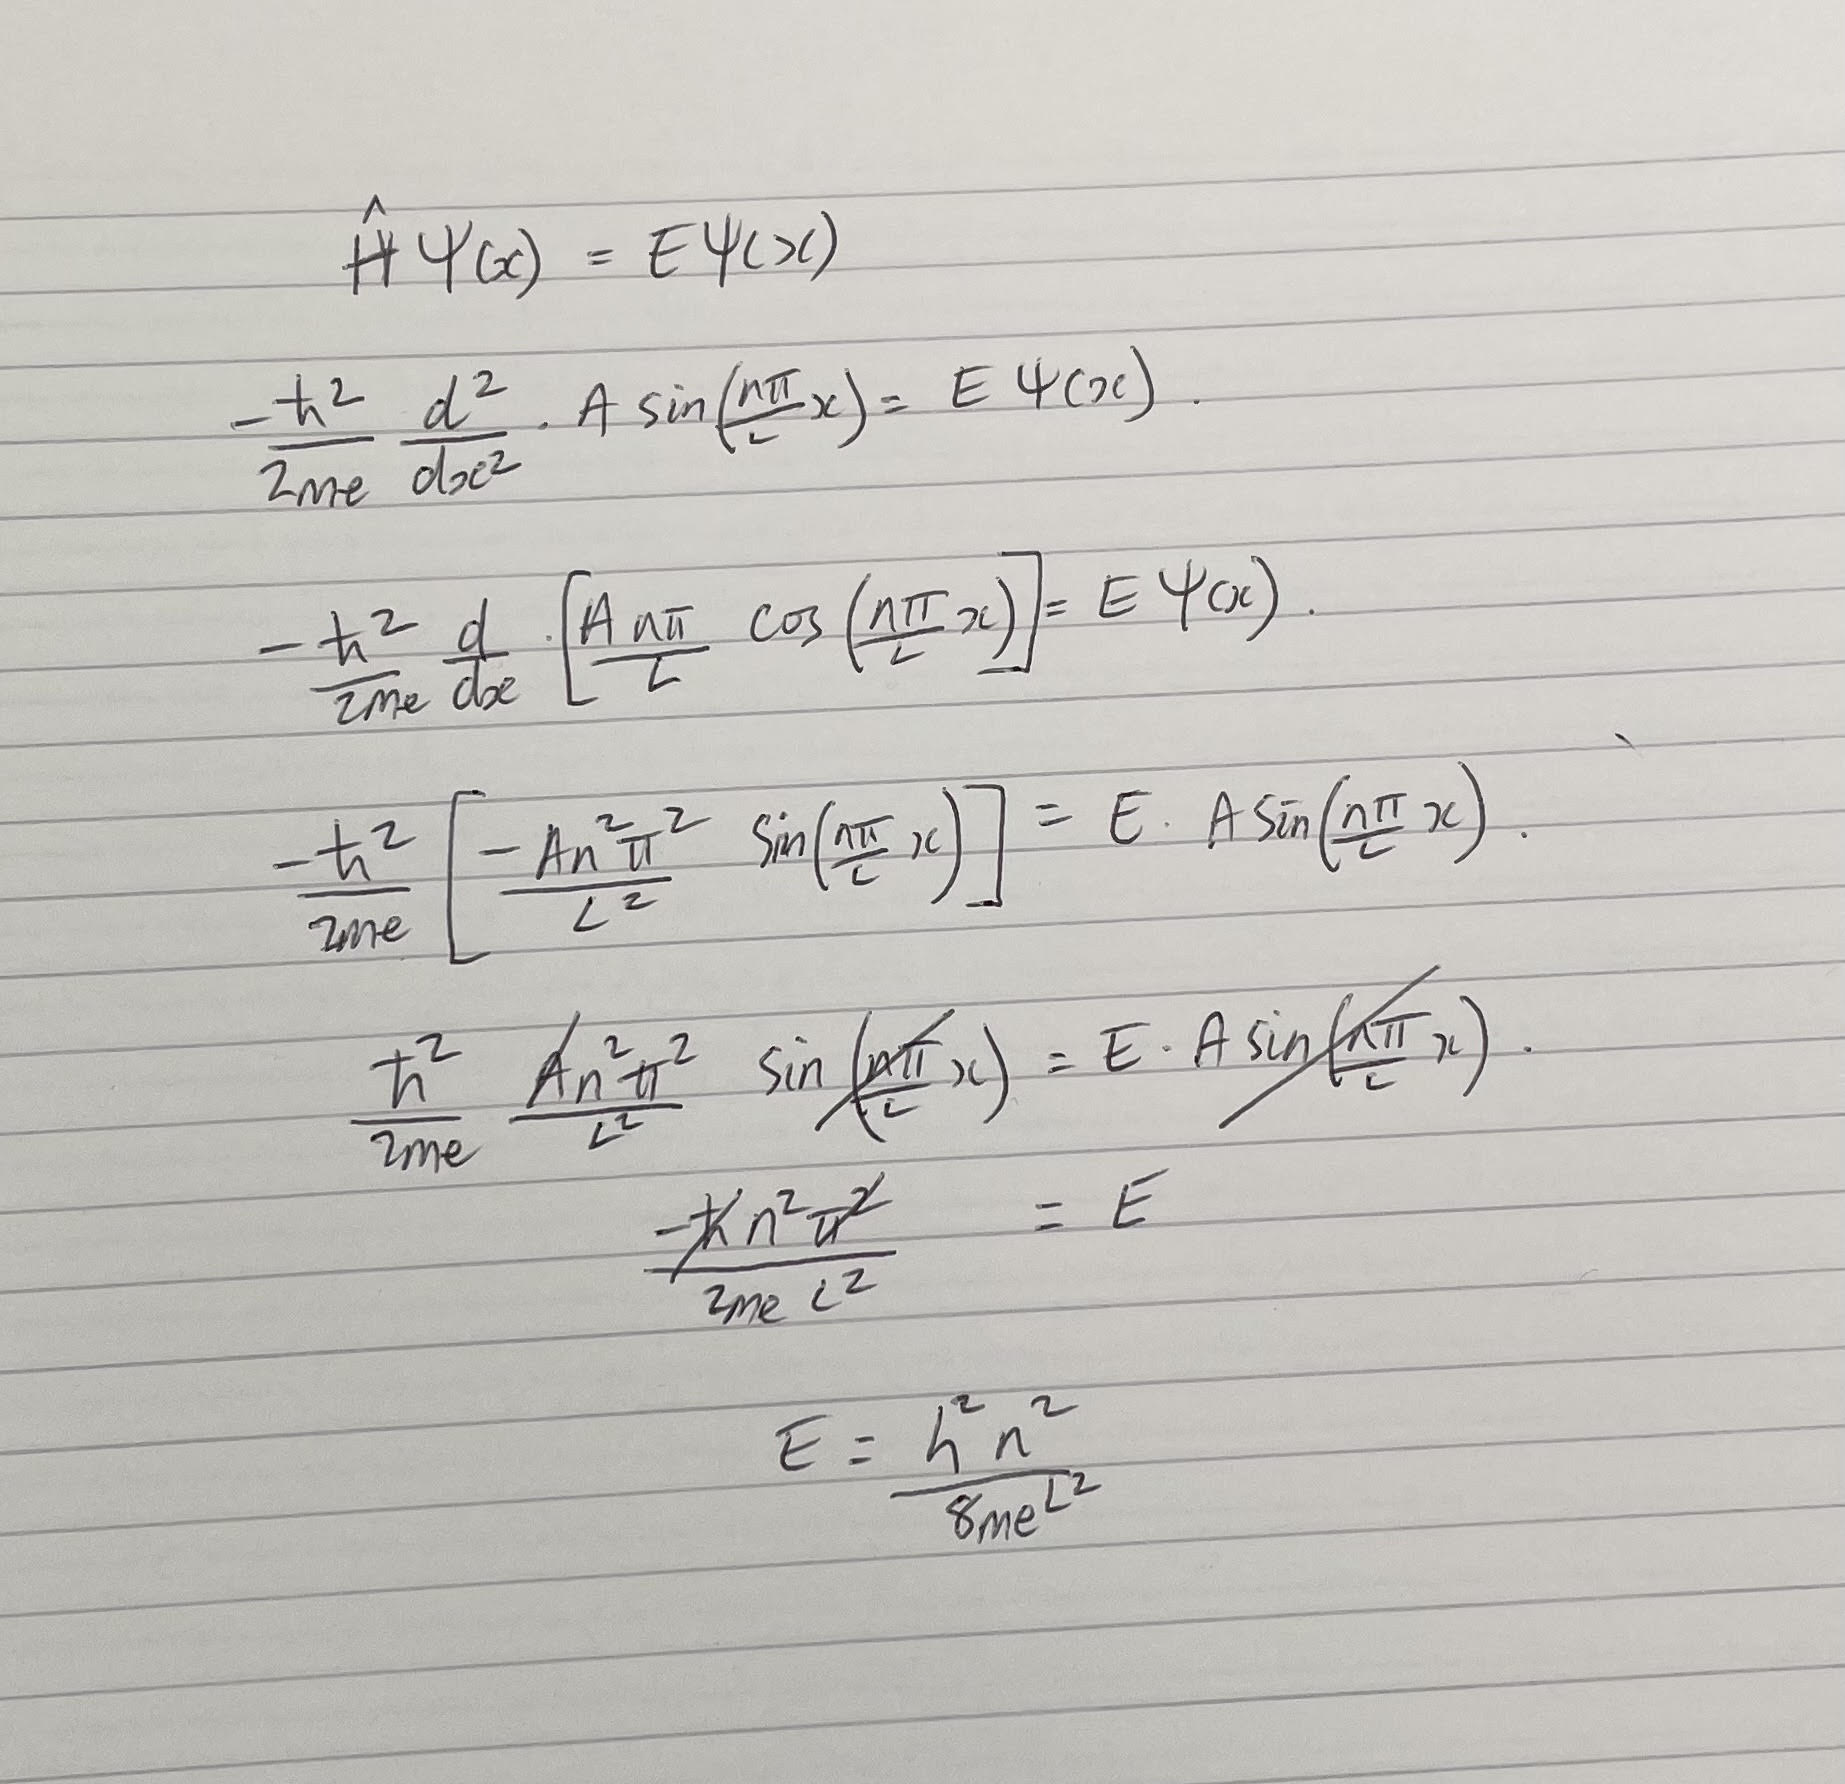 Ĥ Ψ(x) = E Ψ(x)
-ħ²/2me d²/dx² · A sin(nπ/L x) = E Ψ(x).
-ħ²/2me d/dx · [Anπ/L cos(nπ/L x)] = E Ψ(x).
-ħ²/2me [-An²π²/L² sin(nπ/L x)] = E · A sin(nπ/L x).
ħ²/2me An²π²/L² sin(nπ/L x) = E · A sin(nπ/L x).
-ħn²π²/2me L² = E
E = h²n²/8meL²